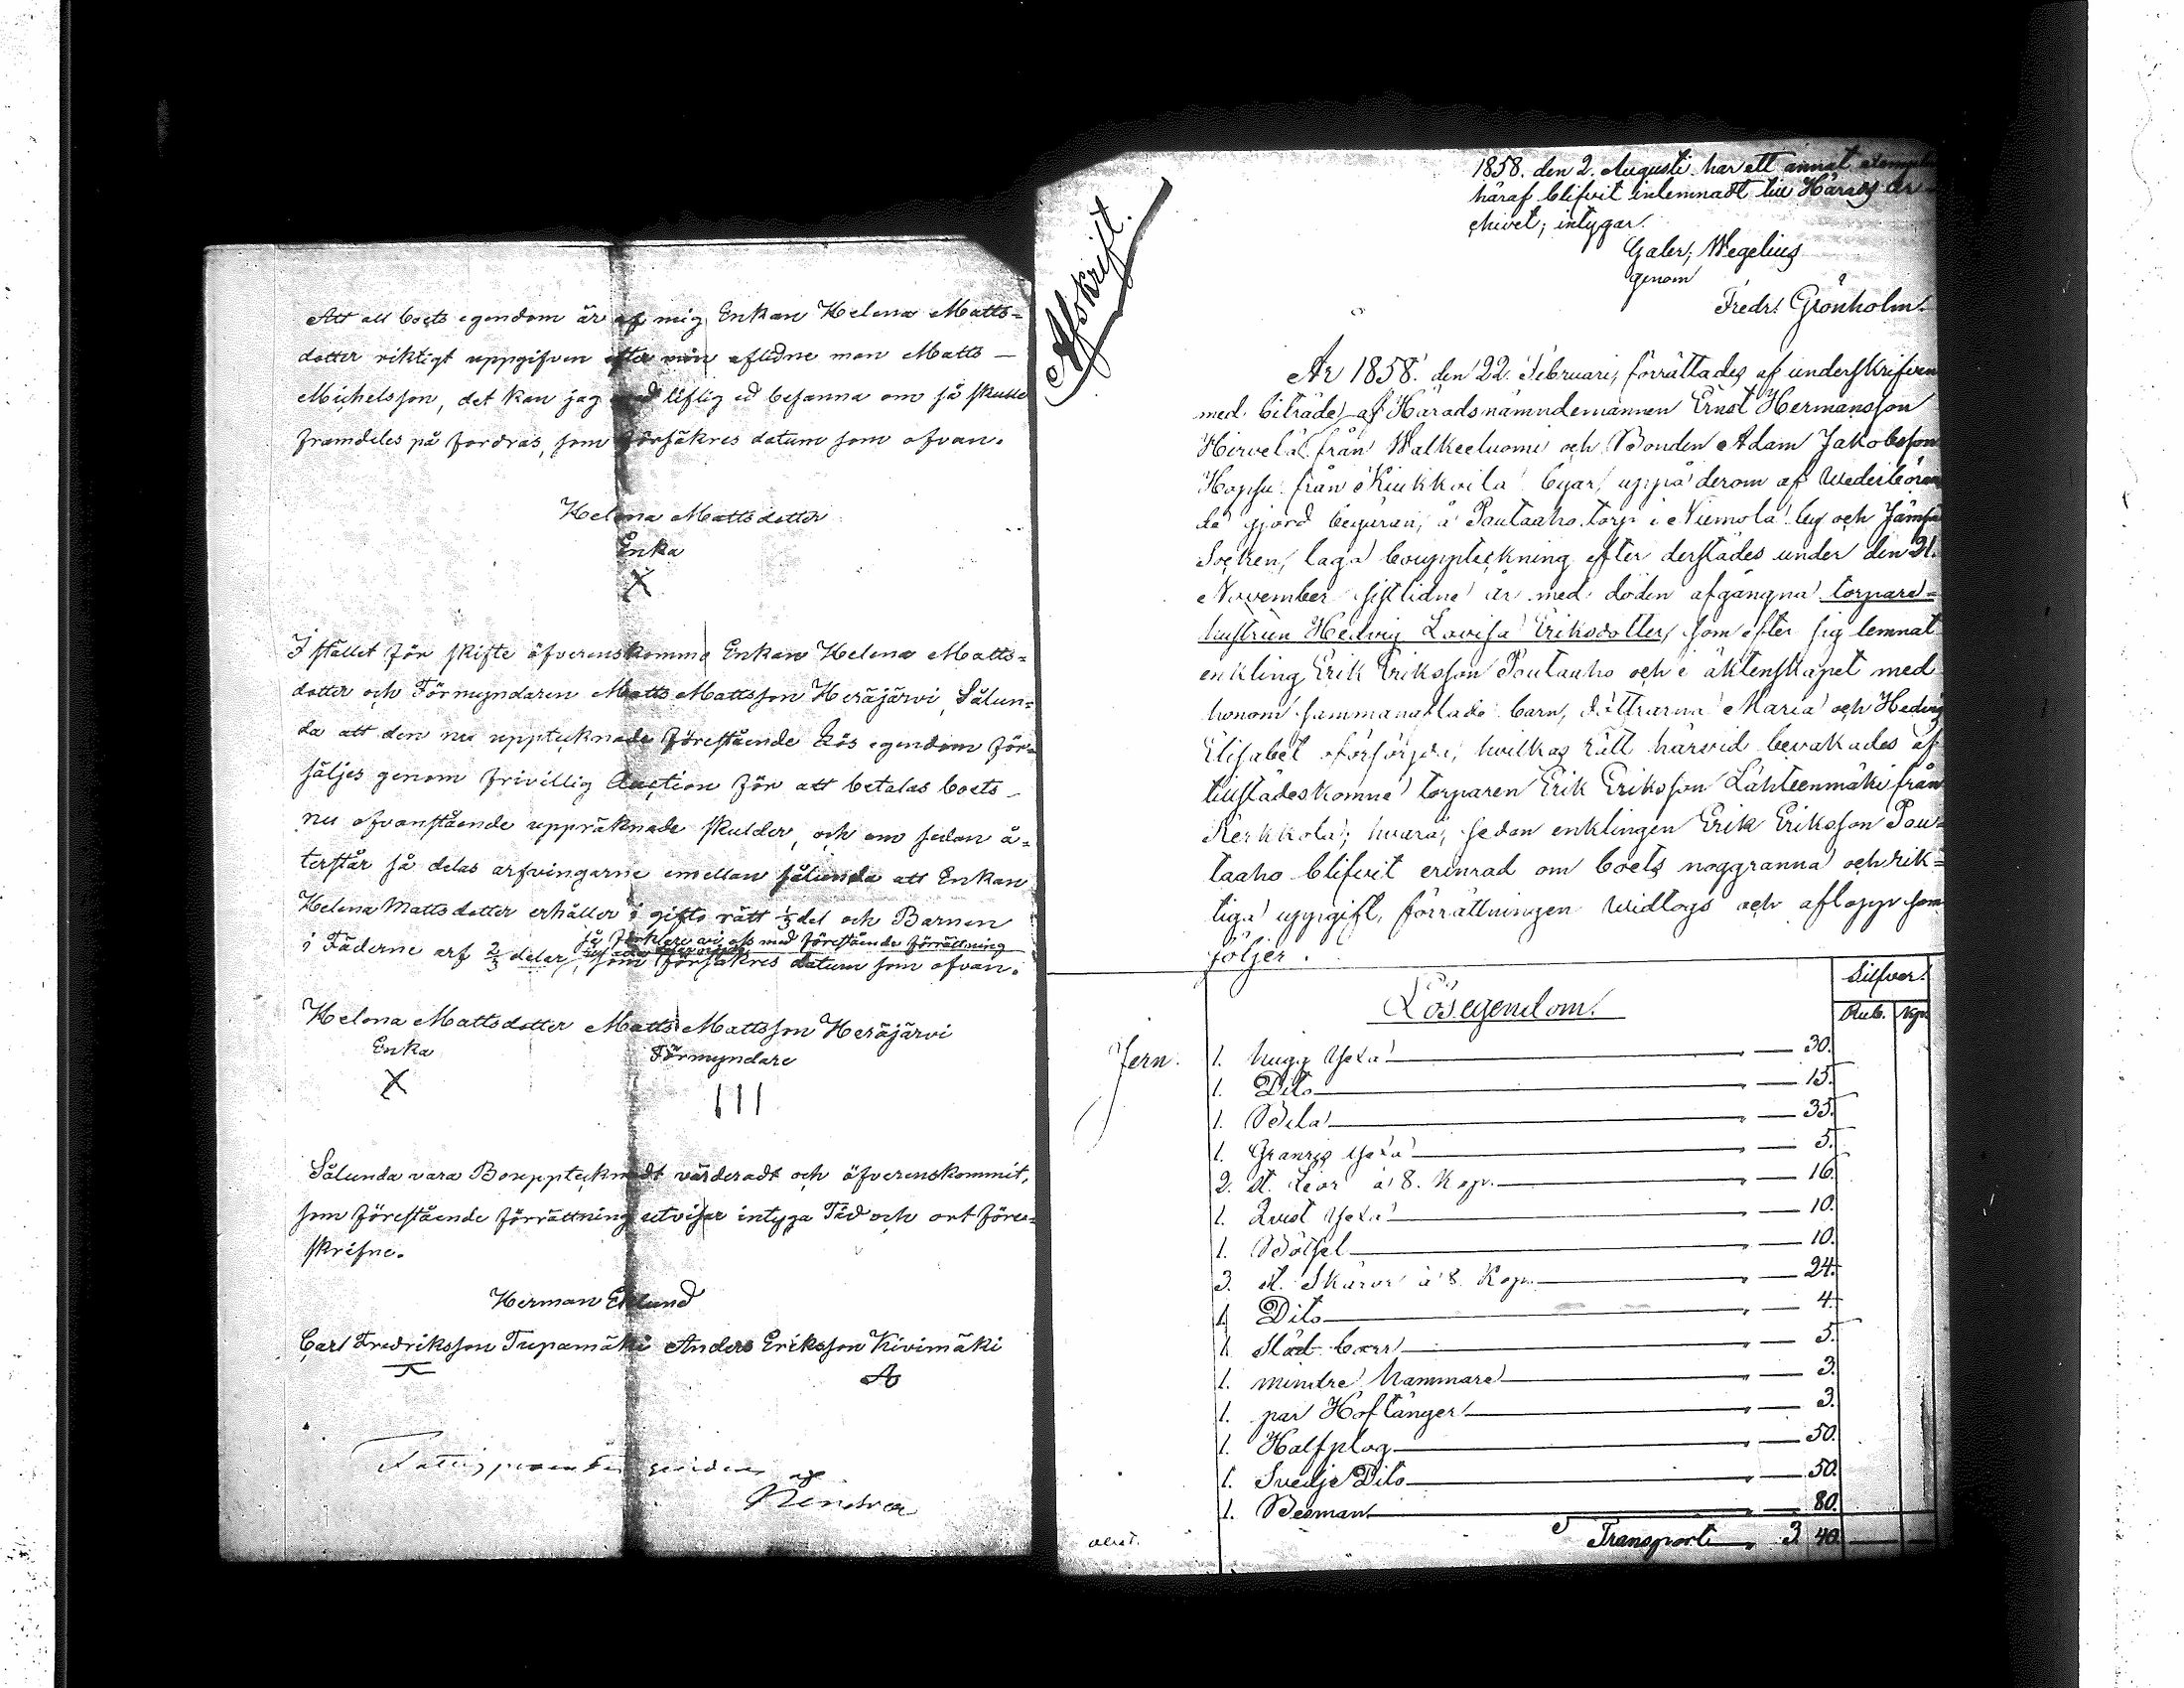 Att all boets egendom är af mig Enkan Helena Matts-
dotter riktigt uppgifven efter min aflidne man Matts
Michelsson, det kan jag med liflig ed besanna om så skulle
framdeles på fordras, som försäkres datum som ofvan.
Helena Mattsdotter
Enka
X
I stället för skifte öfverenskommo Enkan Helena Matts-
dotter och Förmyndaren Matts Mattsson Heräjärvi, Sålun-
da att den nu upptecknade förestående Lös egendom för-
säljes genom frivillig Auction för att betalas boets
nu ofvanstående uppräknade skulder, och om sedan å-
terstår så delas arfvingarne emellan sålunda att Enkan
Helena Mattsdotter erhåller i gifto rätt 1/3 del och Barnen
så förklare vi oss med förestående förrättning
i Fäderne arf 2/3 delar, som försäkres datum som ofvan.
Helena Mattsdotter Matts Mattsson Heräjärvi
Enka Förmyndare
X III
Sålunda vara Bouppteknadt värderadt och öfverenskommit,
som förestående förrättning utvisar intyga Tid och ort före-
skrifne.
Herman Eklund
Carl Fredriksson Tupamäki Anders Eriksson Kivimäki
A
af
Afskrift.
1858. den 2. Augusti har ett annat
häraf blifvit inlemnadt till Härads Ar-
chivet; intygar.
Gabr; Wegelius
genom
Fredr. Grönholm.
År 1858. den 22. Februari, förrättades af underskrifven
med biträde af Häradsnämndemannen Ernst Hermansson
Hirvelä från Walkeeluomi och Bonden Adam Jakobsson
Hopsu från Kiukkoila byar, uppå derom af Wederbören-
de gjord begäran, å Poutaaho torp i Niemola by och Jämsä
Socken, laga bouppteckning efter derstädes under den 21.
November sistlidne år med döden afgångna torpare-
hustrun Hedvig Lovisa Eriksdotter, som efter sig lemnat
enkling Erik Eriksson Poutaaho och i äktenskapet med
honom sammanaflade barn, döttrarna Maria och Hedvig
Elisabet oförsörjda, hvilkas rätt härvid bevakades af
tillstädeskomne torparen Erik Eriksson Lähteenmäki från
Kerkkola; hvarå, sedan enklingen Erik Eriksson Pou-
taaho blifvit erinrad om boets noggranna och rik-
tiga uppgift, förrättningen widtogs och aflopp som
följer.
Lösegendom. Silfver.
Rub. Kop.
Jern. 1. hugg Yxa — 30.
1. Dito — 15.
1. Bila — 35.
1. Granris Yxa — 5.
2. st. Liar à 8. Kop. — 16.
1. Qvist Yxa — 10.
1. Bötsel — 10.
3. st. Skäror à 8. Kop. — 24.
1. Dito — 4.
1. Städ — 5.
1. mindre hammare — 3.
1. par Hoftänger — 3.
1. Halfplog — 50.
1. Svedje Dito — 50.
1. Besman — 80.
Transport 3 40.